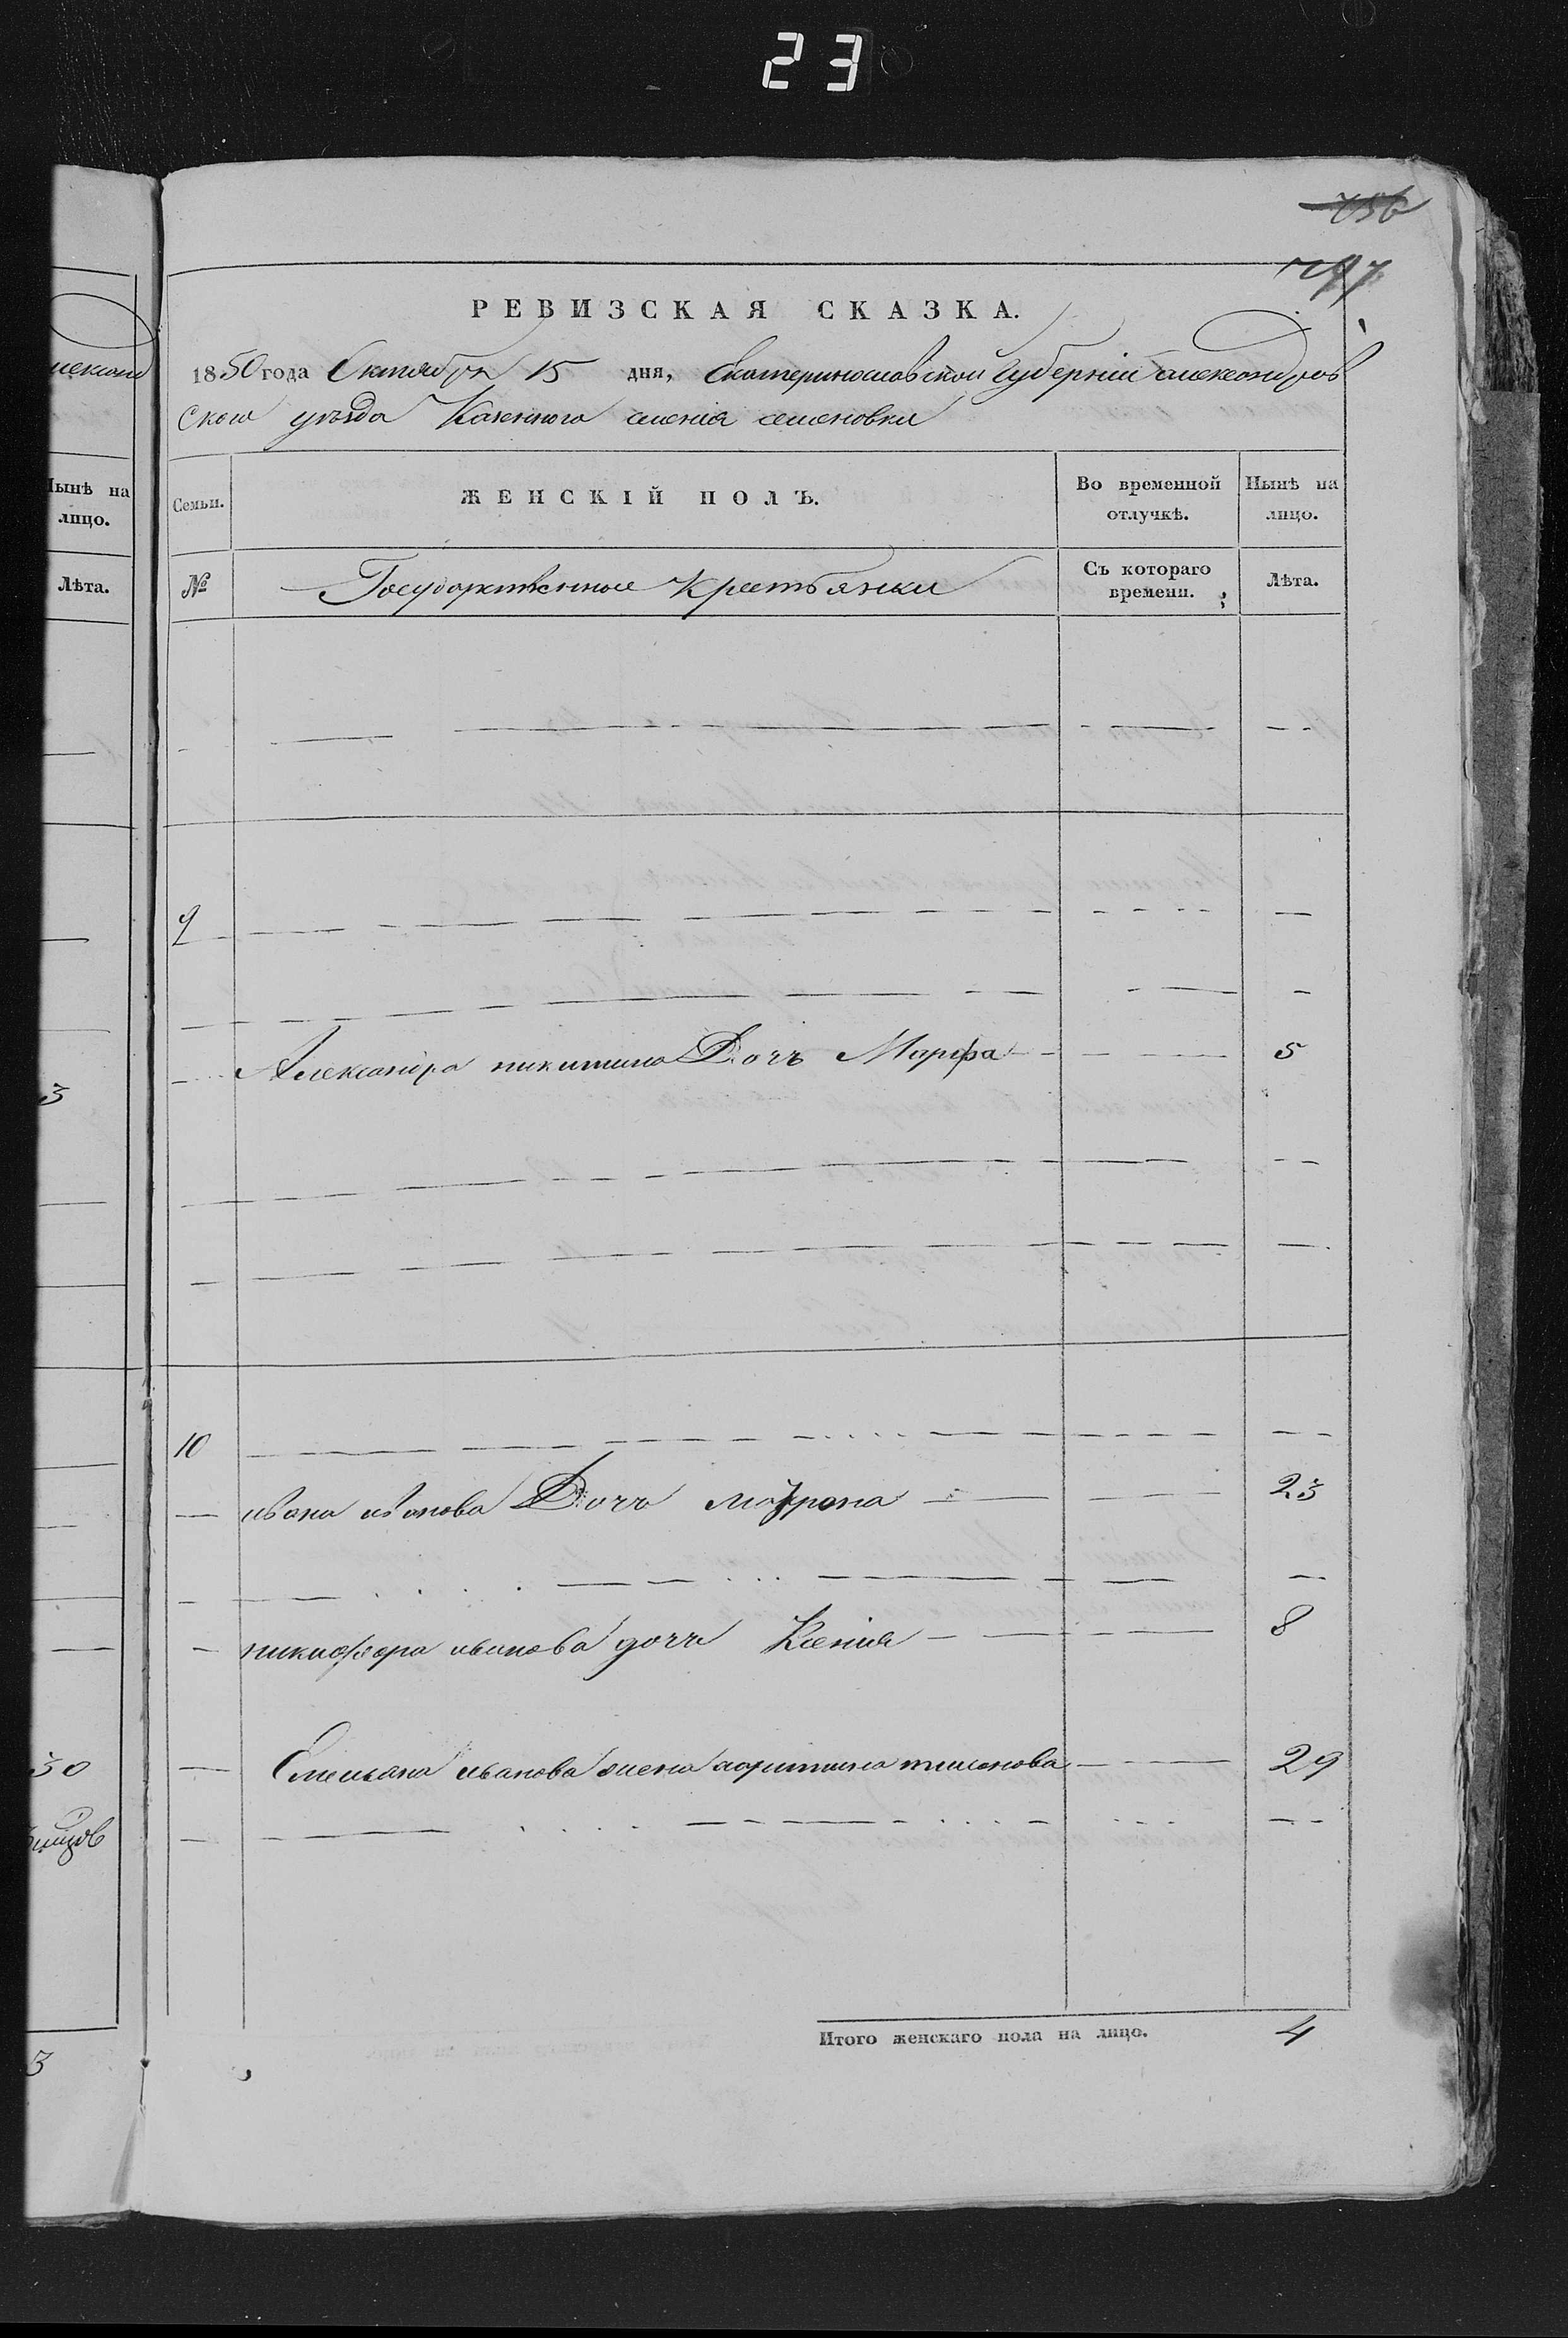 23
756
797
РЕВИЗСКАЯ СКАЗКА.
1850 года Октября 15 дня, Екатеринославской Губерніи александров
ского уѣзда Казенного селенія семеновки
Семьи. ЖЕНСКІЙ ПОЛЪ. Во временной отлучкѣ. Нынѣ на лицо.
№ Государственные Крестьянки Съ котораго времени. Лѣта.
9
Александра никитина Дочъ Марфа 5
10
ивана иванова Дочь матрона 23
никифора иванова дочь Ксенія 8
Емельяна иванова жена тимонова 29
Итого женскаго пола на лицо. 4
Нынѣ на
лицо.
Лѣта.
3
30
3